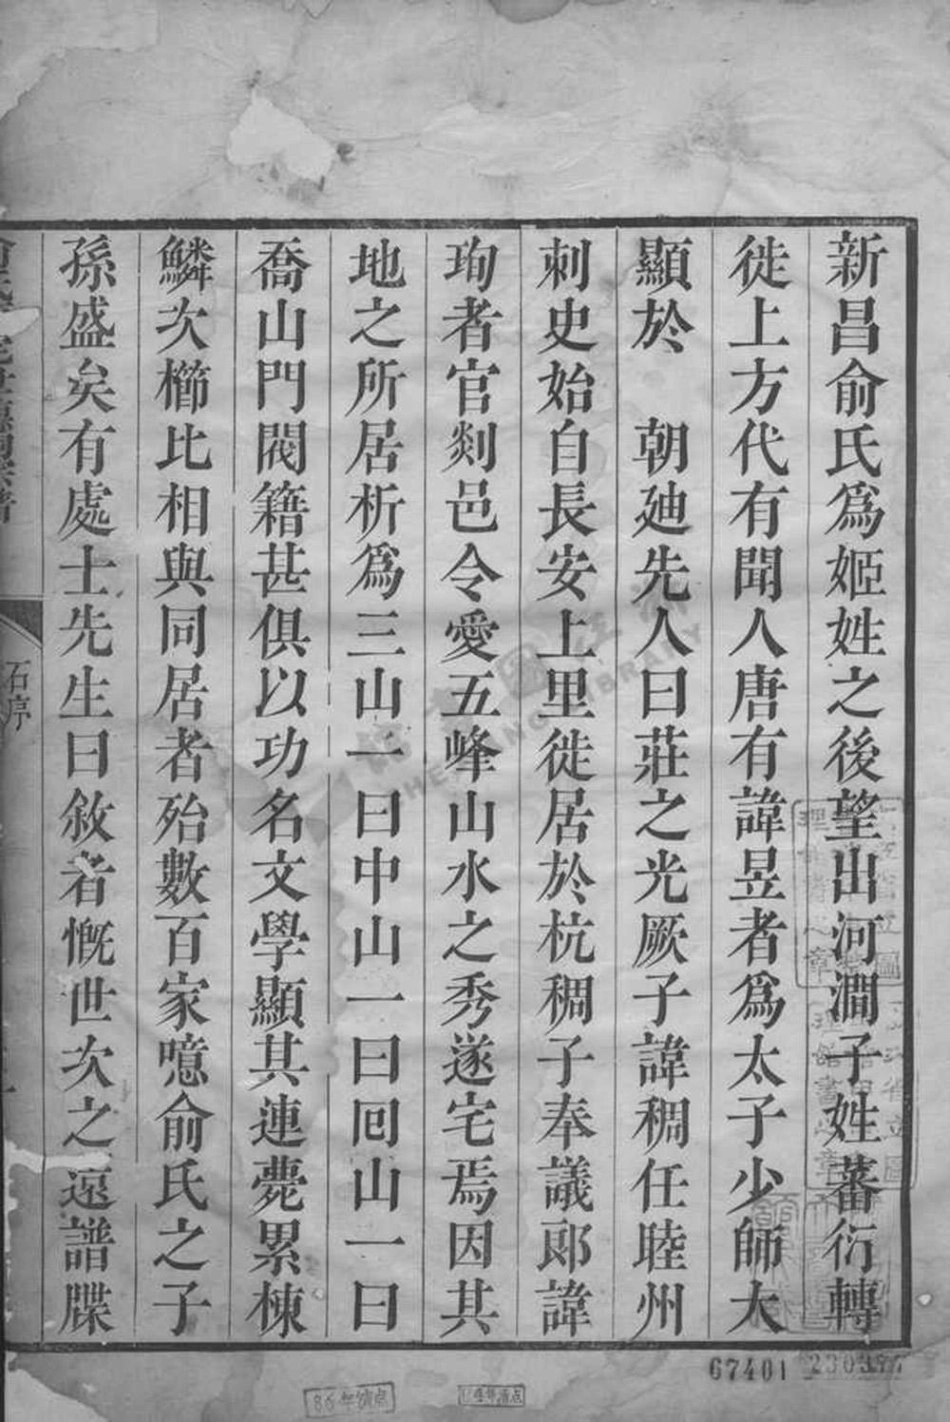 新昌俞氏爲姬姓之後望出河澗子姓蕃衍轉
徙上方代有聞人唐有諱昱者爲太子少師大
顯於　朝廸先人曰莊之光厥子諱稠任睦州
刺史始自長安上里徙居於杭稠子奉議郎諱
珣者官剡邑令愛五峰山水之秀遂宅焉因其
地之所居析爲三山一曰中山一曰囘山一曰
喬山門閥籍甚俱以功名文學顯其連甍累棟
鱗次櫛比相與同居者殆數百家噫俞氏之子
孫盛矣有處士先生曰敘者慨世次之遠譜牒
石序
67401
230377
86年清点